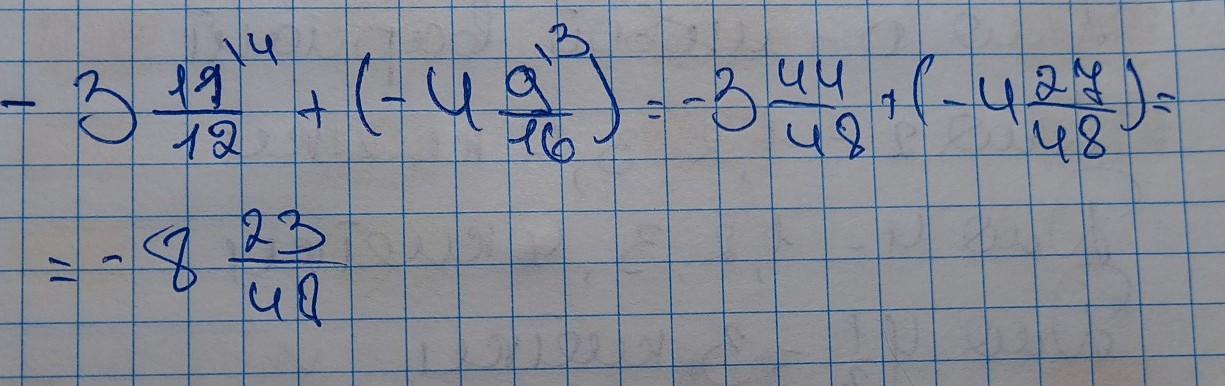 - 3 11\4/12 + (- 4 9\3/16) = - 3 44/48 + (- 4 27/48) =
= - 8 23/48